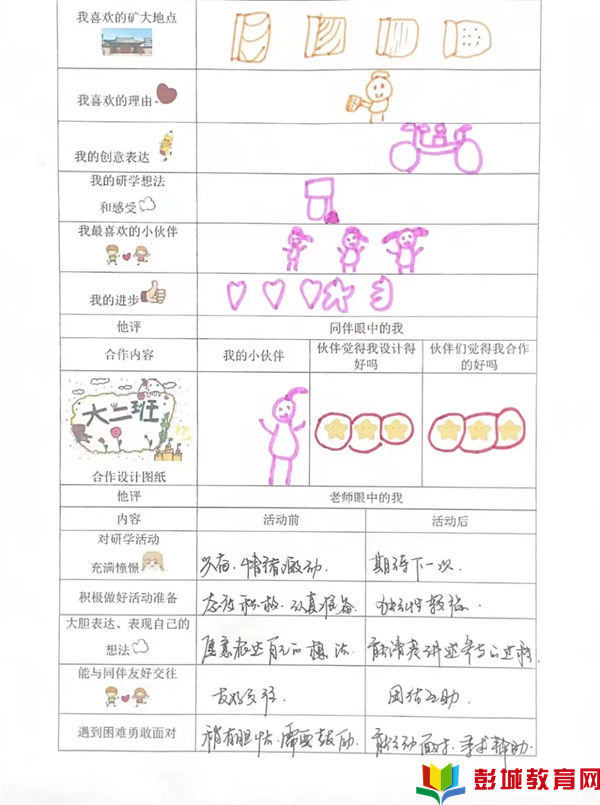 我喜欢的矿大地点
我喜欢的理由
我的创意表达
我的研学想法
和感受
我最喜欢的小伙伴
我的进步
他评 同伴眼中的我
合作内容 我的小伙伴 伙伴觉得我设计得好吗 伙伴们觉得我合作的好吗
大二班
合作设计图纸
他评 老师眼中的我
内容 活动前 活动后
对研学活动
充满憧憬 兴奋、情绪激动、 期待下一次、
积极做好活动准备 态度积极、认真准备
大胆表达、表现自己的
想法 愿意表达自己的想法、 能清楚讲述参与的过程、
能与同伴友好交往
友好交往、 团结互助、
遇到困难勇敢面对 稍有胆怯、需要鼓励、 能主动面对、寻求帮助、
彭城教育网